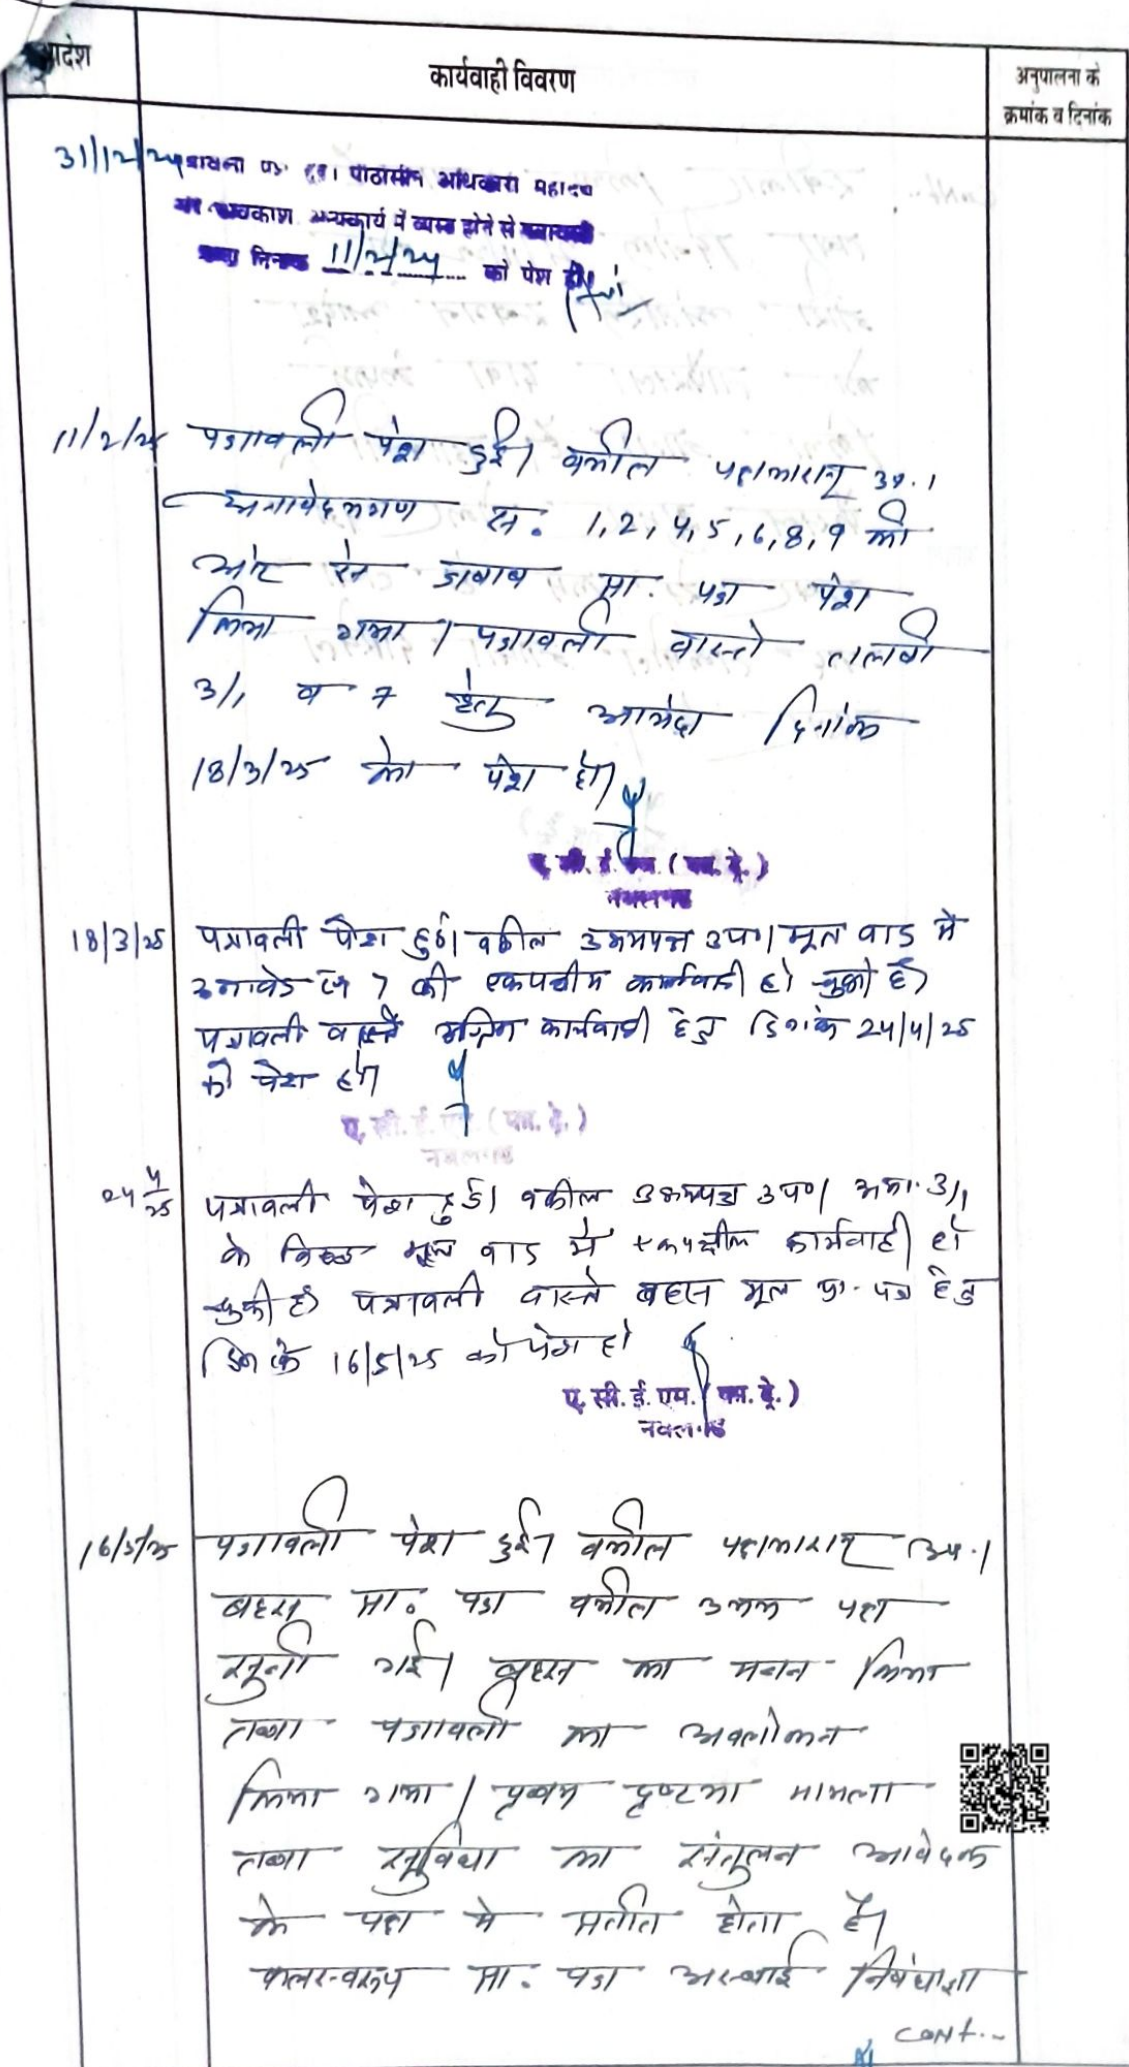 आदेश
कार्यवाही विवरण
अनुपालना के
क्रमांक व दिनांक
31/12/24 पीठासीन अधिकारी महोदय
अवकाश अन्यकार्य में व्यस्त होने से
को पेश हो।
11/2/25 पत्रावली पेश हुई। वकील पक्षकारान् उप.।
अनावेदकगण स. 1,2,4,5,6,8,9 की
ओर से जवाब प्रा. पत्र पेश
किया गया। पत्रावली वास्ते तलबी
3/1 व 7 हेतु आयंदा दिनांक
18/3/25 को पेश हो।
ए. सी. ई. एम. (फा. ट्रे.)
नवलगढ
18/3/25 पत्रावली पेश हुई। वकील उभयपक्ष उप०। मूल वाद में
अनावेदक सं 7 की एकपक्षीय कार्यवाही हो चुकी है।
पत्रावली वास्ते अग्रिम कार्यवाही हेतु दिनांक 24/4/25
को पेश हो।
ए. सी. ई. एम. (फा. ट्रे.)
नवलगढ
24/4/25 पत्रावली पेश हुई। वकील उभयपक्ष उप०। अना. 3/1
के विरूद्ध मूल वाद में एकपक्षीय कार्यवाही हो
चुकी है। पत्रावली वास्ते बहस मूल प्रा. पत्र हेतु
दिनांक 16/5/25 को पेश हो
ए. सी. ई. एम. (फा. ट्रे.)
नवलगढ
16/5/25 पत्रावली पेश हुई। वकील पक्षकारान् उप.।
बहस प्रा. पत्र वकील उभय पक्ष
सुनी गई। बहस का मनन किया
तथा पत्रावली का अवलोकन
किया गया। प्रथम दृष्टया मामला
तथा सुविधा का संतुलन आवेदक
के पक्ष में प्रतीत होता है।
फलस्वरूप प्रा. पत्र अस्थाई निषेधाज्ञा
CONT..